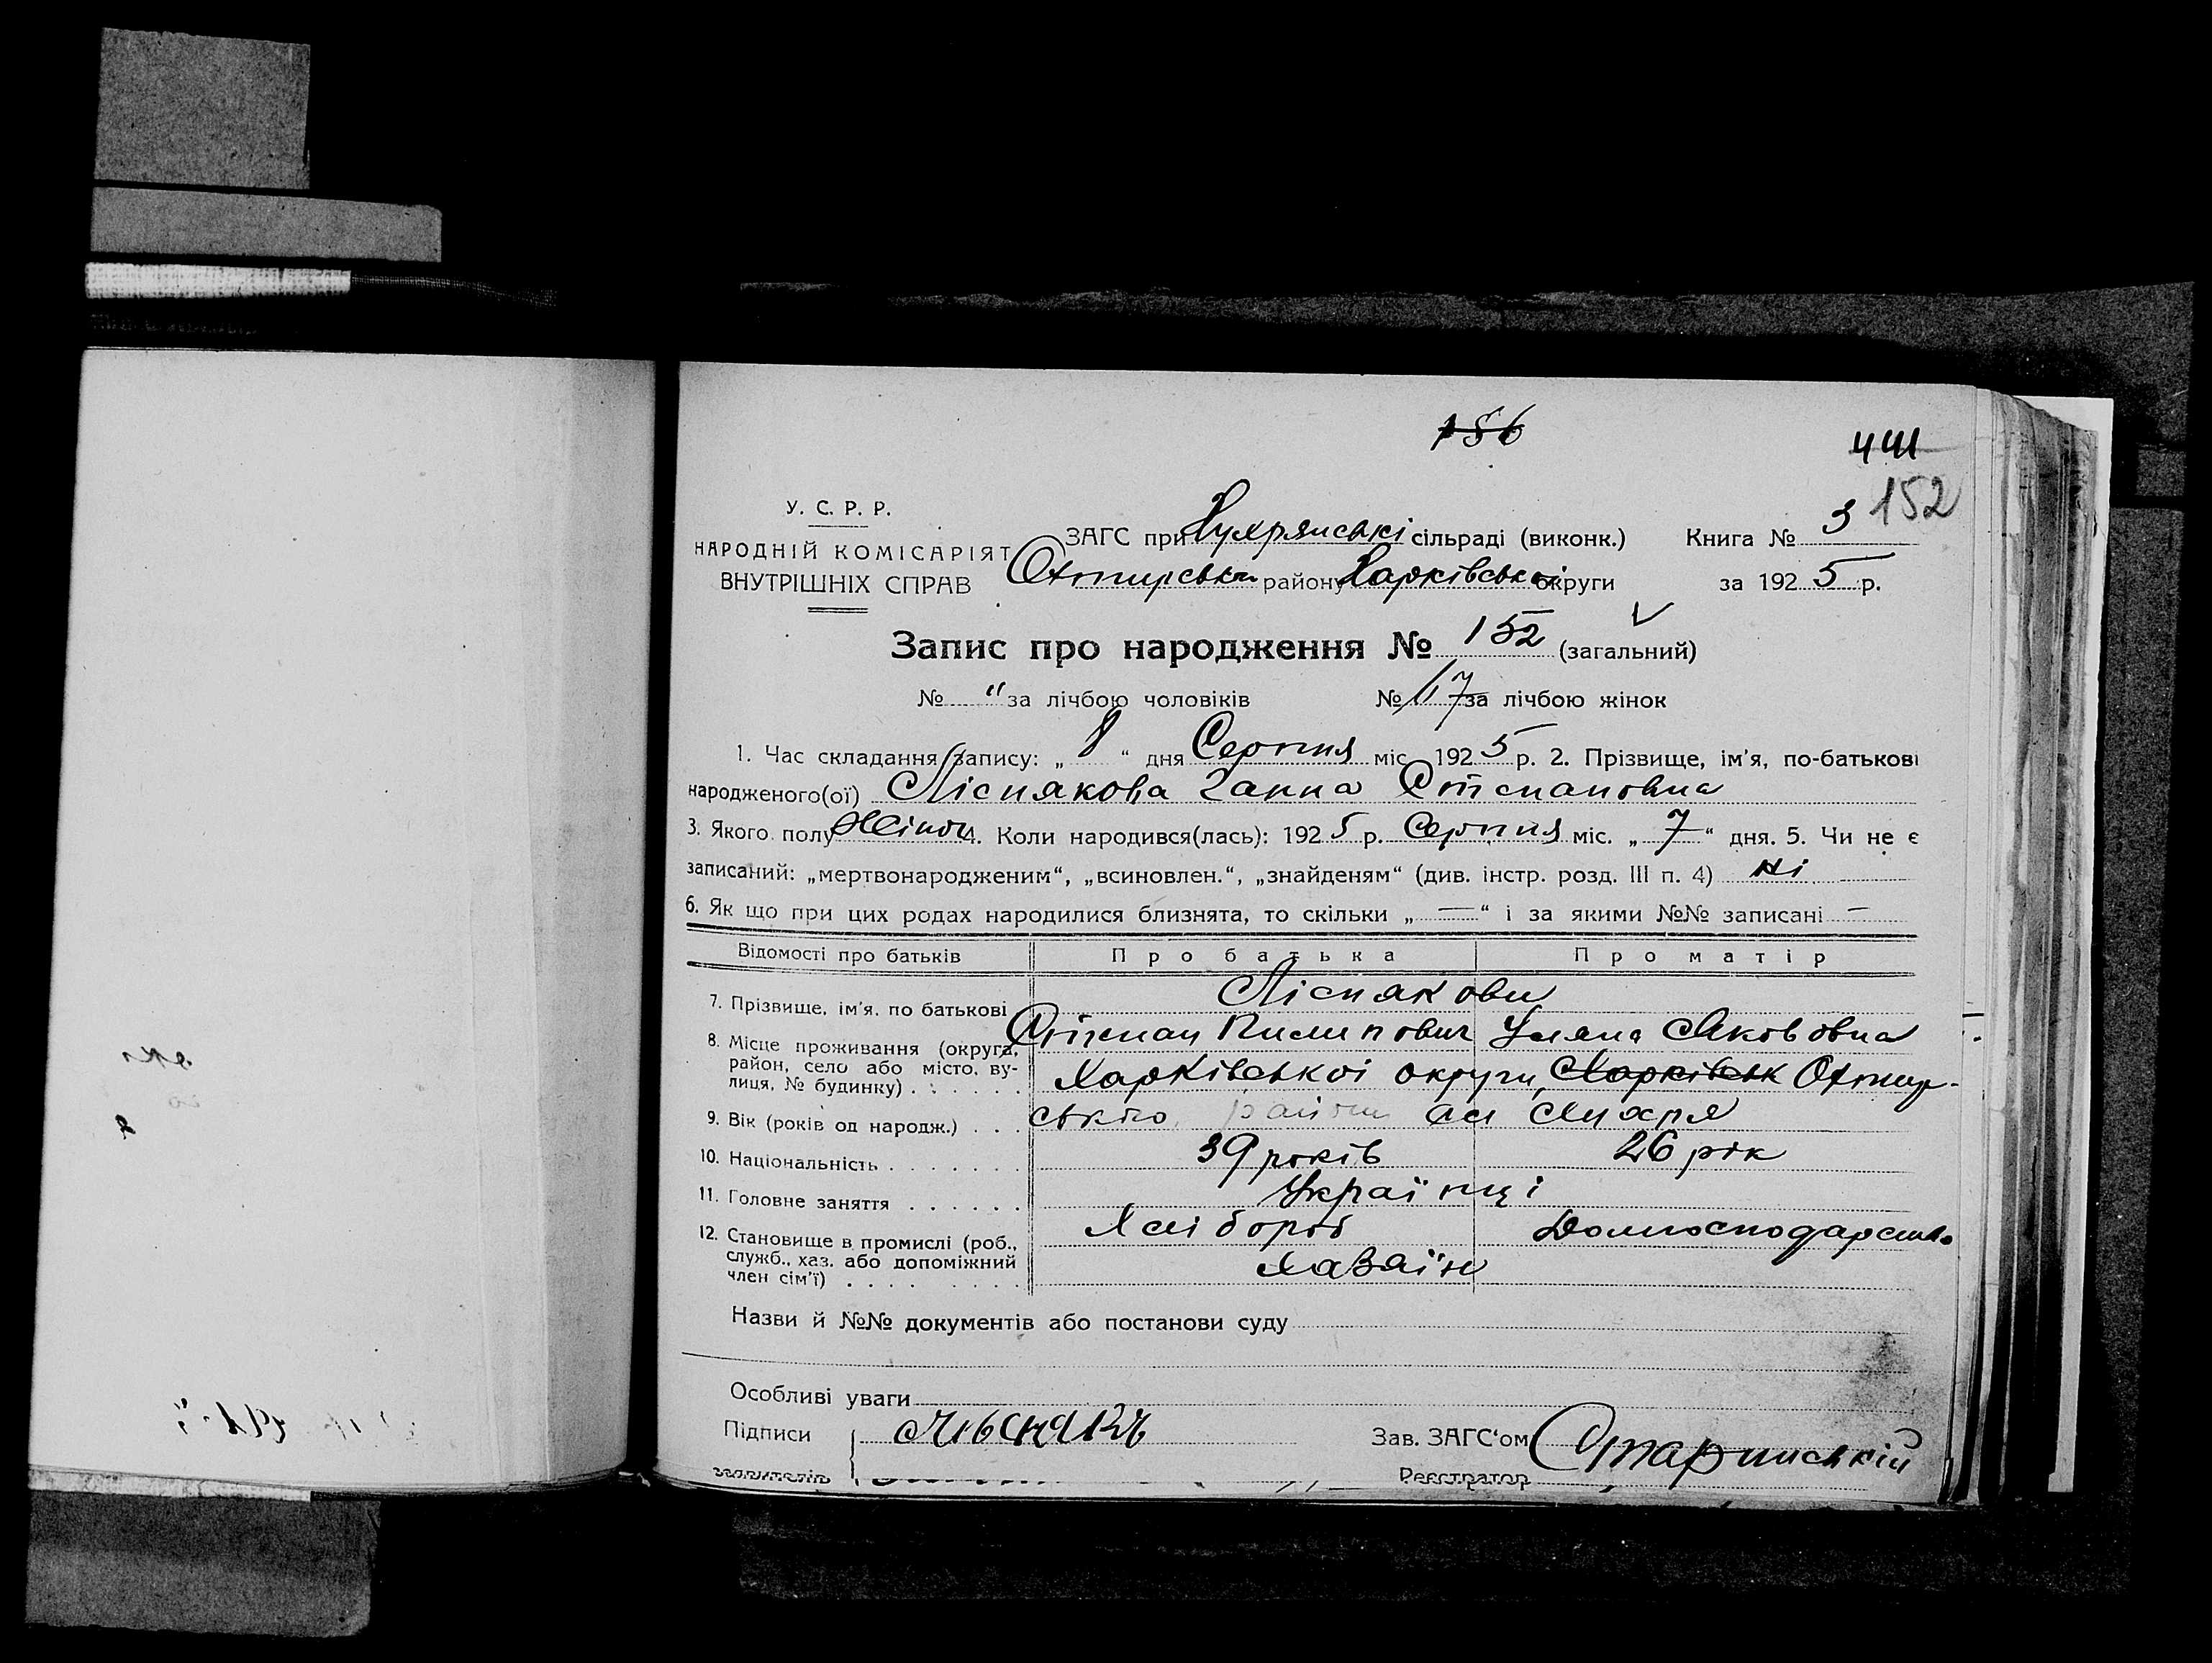 156
441
152
У. С. Р. Р.
НАРОДНІЙ КОМІСАРІЯТ
ВНУТРІШНІХ СПРАВ
ЗАГС при сільраді (виконк.) Книга № 3
Охтирськ району Харківської округи за 1925 р.
Запис про народження № 152 (загальний)
№ " за лічбою чоловіків № 17 за лічбою жінок
1. Час складання запису: „ 8 “ дня Серпня міс. 1925 р. 2. Прізвище, ім'я, по-батькові
народженого(ої)Ліснякова Ганна Степановна
3. Якого полу Жіноч 4. Коли народився(лась): 1925 р. Серпня міс. „ 7 “ дня. 5. Чи не є
записаний: „мертвонародженим“, „всиновлен.“, „знайденям“ (див. інстр. розд. III п. 4) ні
6. Як що при цих родах народилися близнята, то скільки „ — “ і за якими №№ записані —
Відомості про батьків Про батька Про матір
7. Прізвище, ім'я, по батьковіЛіснякови
Степан Пилипович Уляна Якововна
8. Місце проживання (округа,
район, село або місто, ву-
лиця, № будинку) . . . . . Харківської округи, Харківськ Охтир-
ського району
9. Вік (років од народж.) . . . 39 років 26 рік
10. Національність . . . . . . . Українці
11. Головне заняття . . . . . . Хлібороб Домгосподарство
12. Становище в промислі (роб.,
служб., хаз. або допоміжний
член сім'ї) . . . . . . . . Хазаїн
Назви й №№ документів або постанови суду
Особливі уваги
Підписи Лісняк Зав. ЗАГС'ом
заявителів Реєстратор